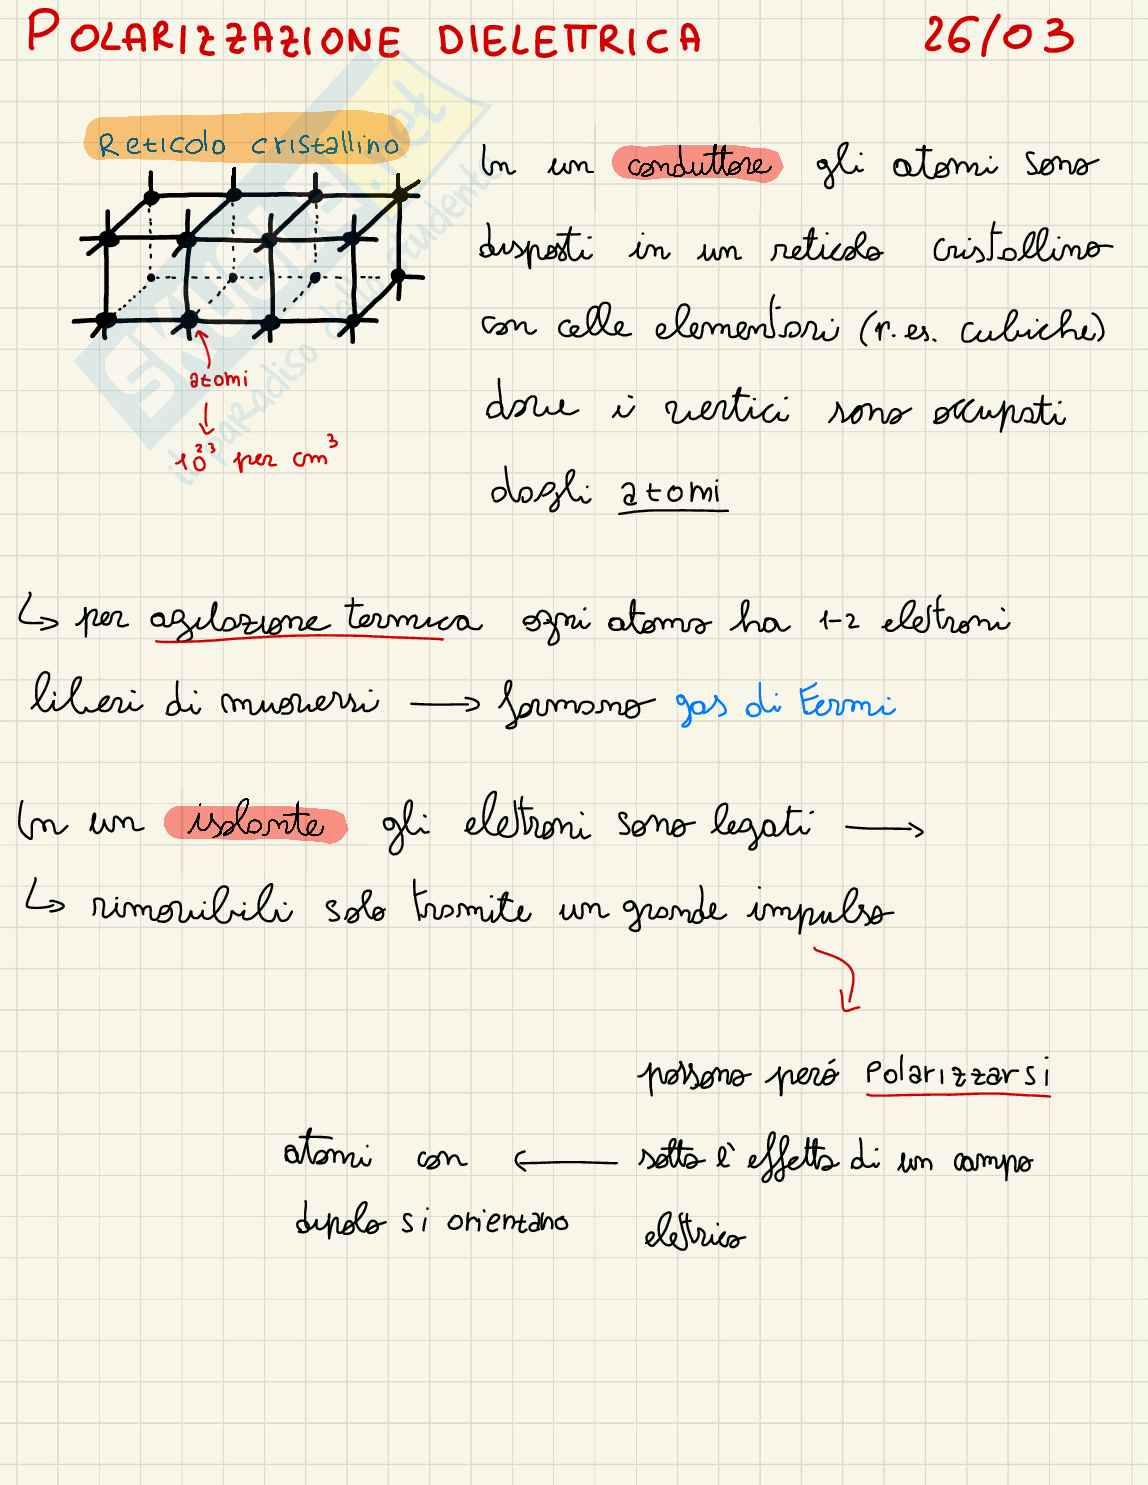 POLARIZZAZIONE DIELETTRICA 26/03
Reticolo cristallino
atomi
10²³ per cm³
In un conduttore gli atomi sono
disposti in un reticolo cristallino
con celle elementari (p. es. cubiche)
dove i vertici sono occupati
dagli atomi
↳ per agitazione termica ogni atomo ha 1-2 elettroni
liberi di muoversi → formano gas di Fermi
In un isolante gli elettroni sono legati →
↳ rimovibili solo tramite un grande impulso
possono peró Polarizzarsi
atomi con ← sotto l'effetto di un campo
dipolo si orientano elettrico
SKUOLA.net
il paradiso dello studente